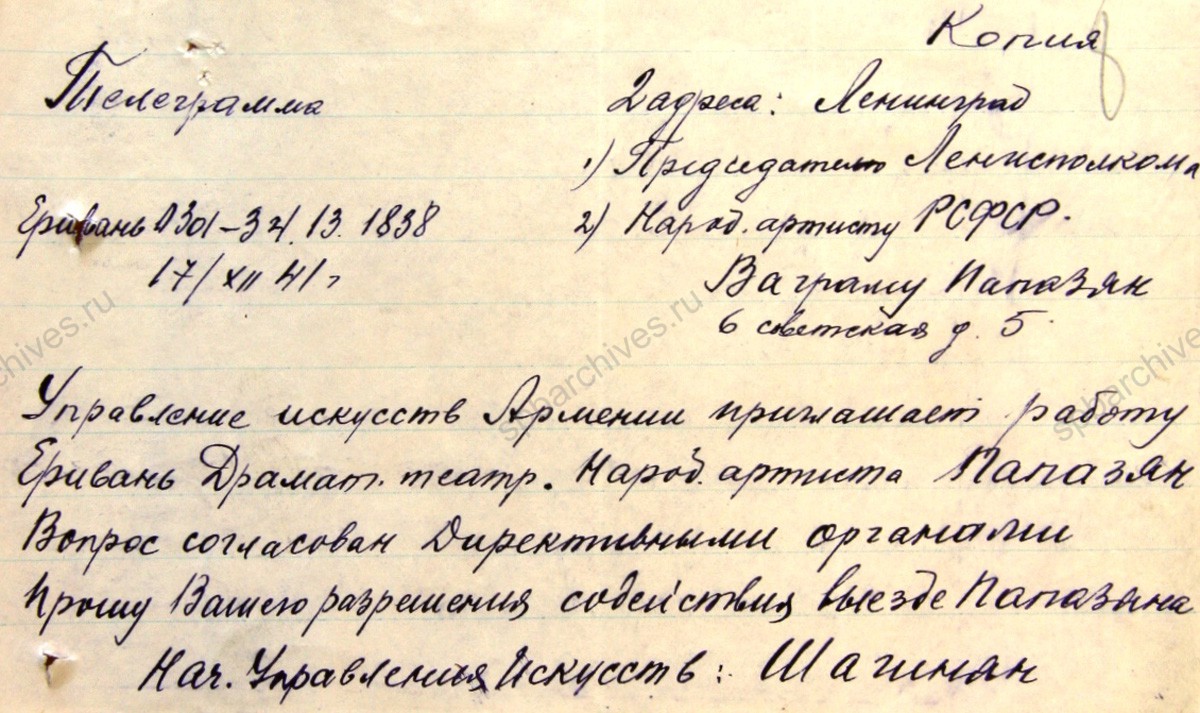 Копия
Телеграмма
2 адреса: Ленинград
1) Председателю Ленисполкома
2) Народ. артисту РСФСР.
Ваграму Папазян
6 советская д. 5
Еривань 13 1838
17/XII 41 г
Управление искусств Армении приглашает работу
Еривань Драмат. театр. Народ. артиста Папазян
Вопрос согласован Директивными органами
Прошу Вашего разрешения содействия выезде Папазяна
Нач. Управления Искусств: Шагинян
spbarchives.ru